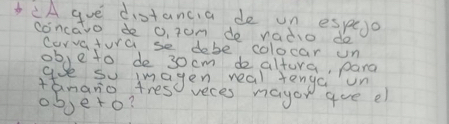 * ¿A qué distancia de un espejo
cóncavo de 0,70m de radio de
curvatura se debe colocar un
objeto de 30cm de altura, para
que su imagen real tenga un
tamaño tres veces mayor que el
objeto?